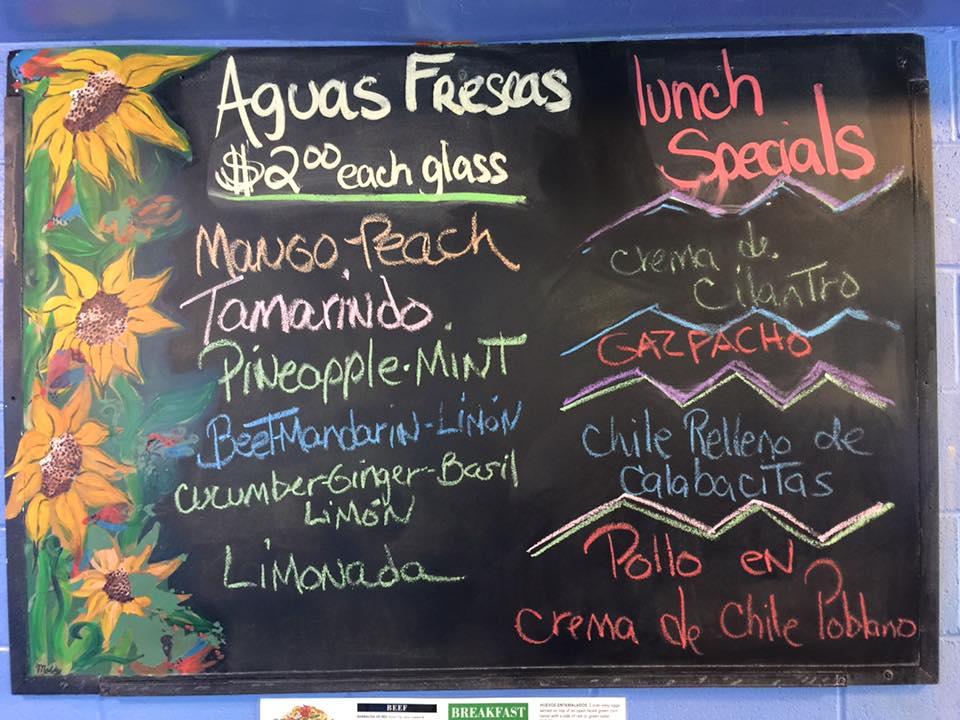 Aguas Frescas
$2.00 each glass
Mango-Peach
Tamarindo
Pineapple-Mint
Beet-Mandarin-Limón
Cucumber-Ginger-Basil
Limón
Limonada
lunch
Specials
crema de
cilantro
GAZPACHO
Chile Relleno de
calabacitas
Pollo en
crema de Chile Poblano
BEEF
BREAKFAST